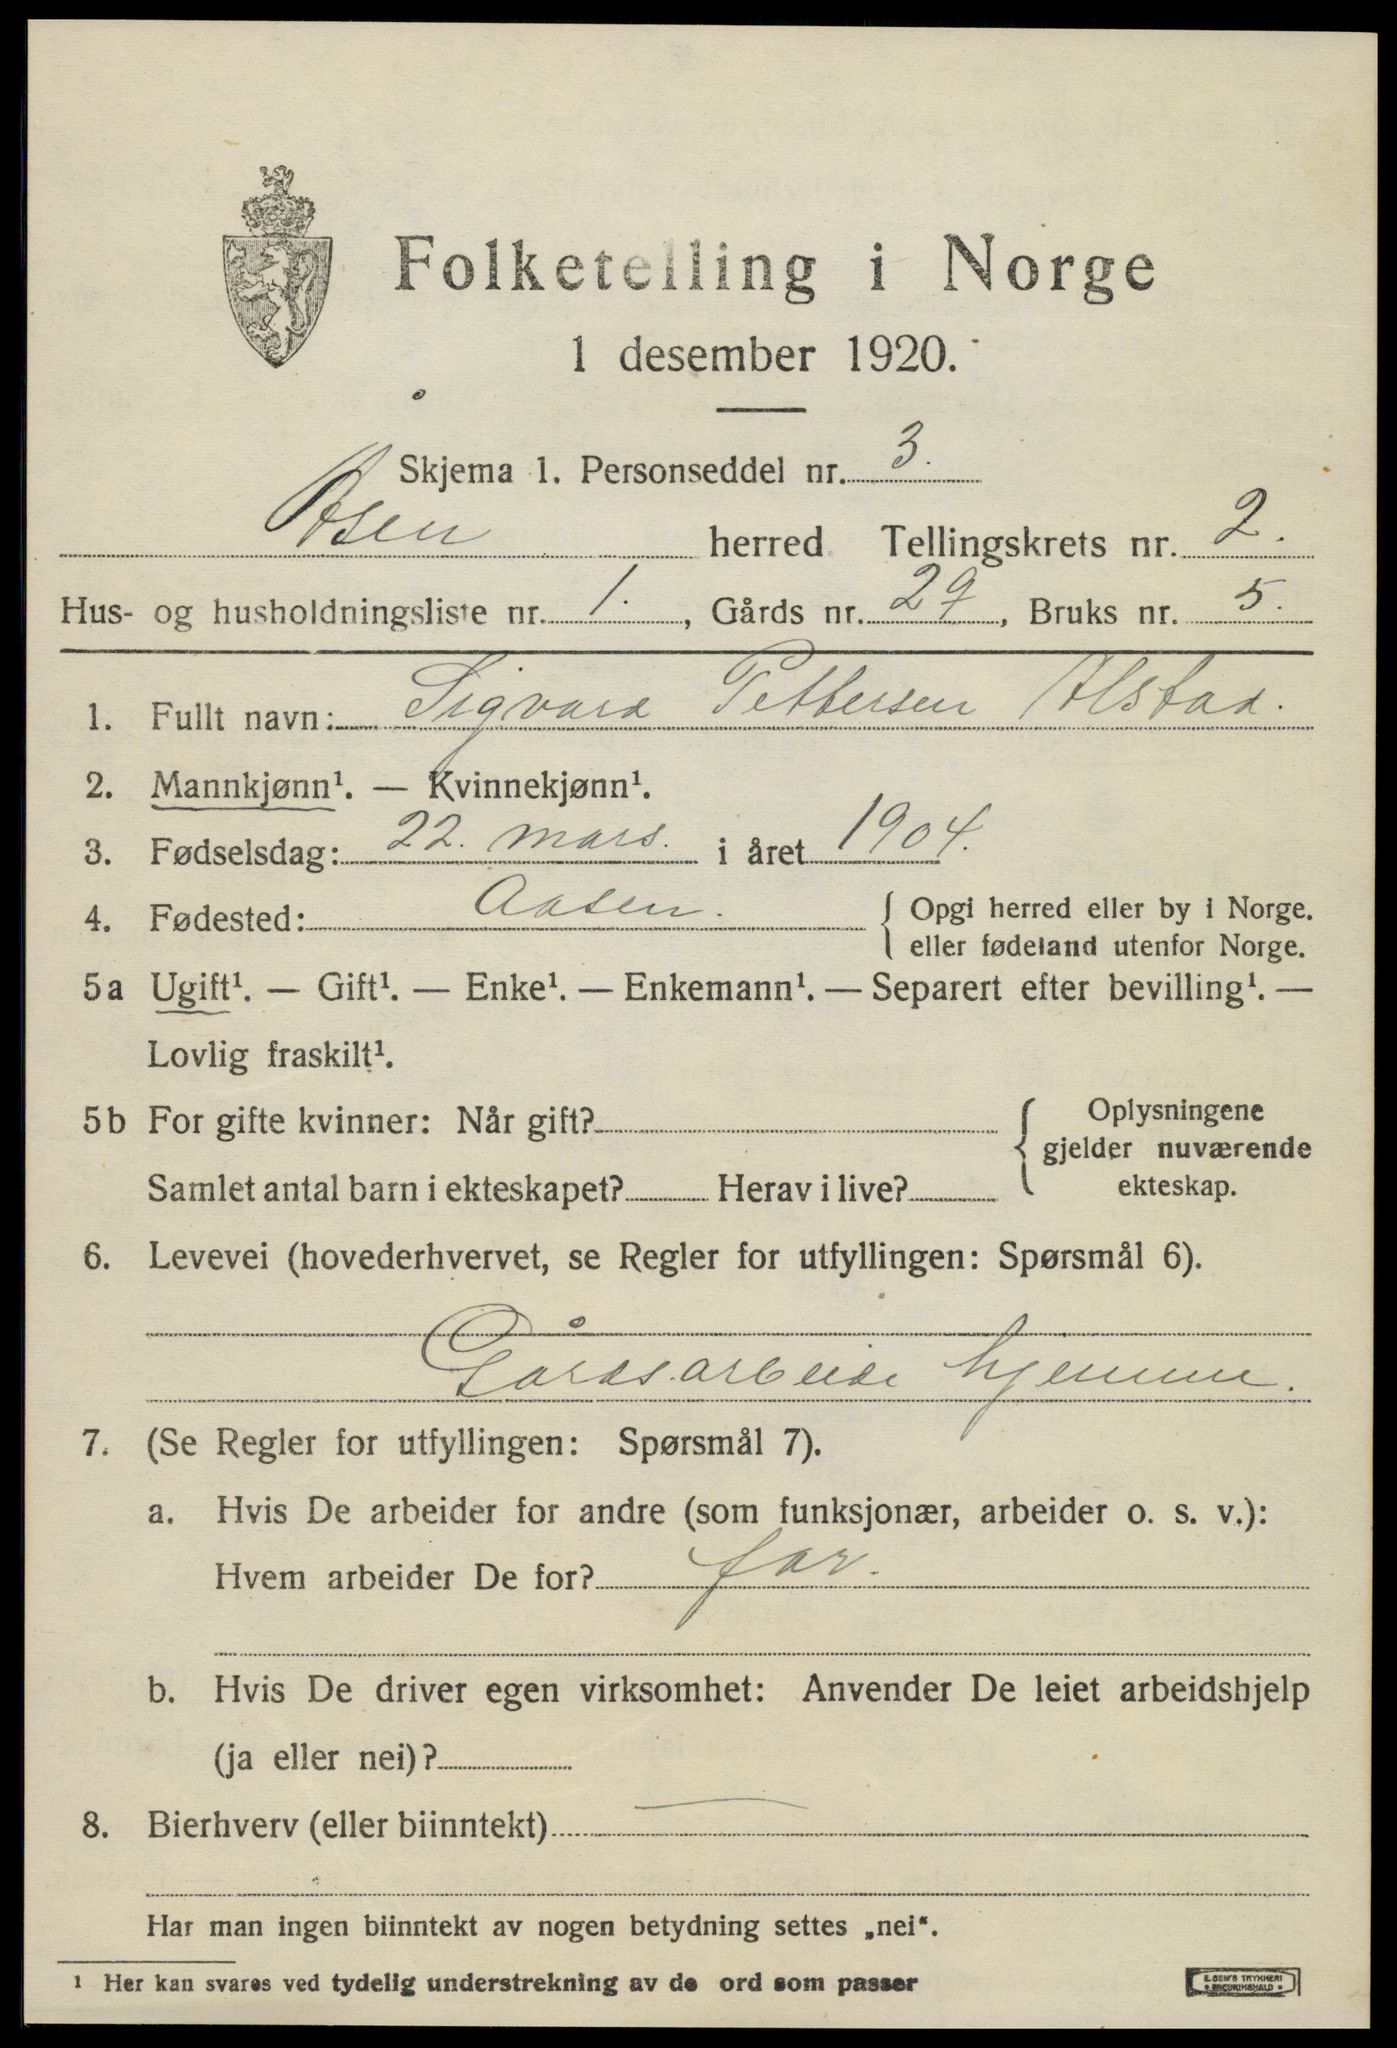 Folketelling i Norge
1 desember 1920.
Skjema 1. Personseddel nr. 3.
Åsen herred Tellingskrets nr. 2.
Hus- og husholdningsliste nr. 1. , Gårds nr. 29 , Bruks nr. 5.
1. Fullt navn: Sigvard Pettersen Alstad.
2. Mannkjønn¹. — Kvinnekjønn¹.
3. Fødselsdag: 22. mars. i året 1904.
4. Fødested: Aasen. { Opgi herred eller by i Norge.
eller fødeland utenfor Norge.
5a Ugift¹. — Gift¹. — Enke¹. — Enkemann¹. — Separert efter bevilling¹. —
Lovlig fraskilt¹.
5b For gifte kvinner: Når gift?
Samlet antal barn i ekteskapet? Herav i live?
Oplysningene
gjelder nuværende
ekteskap.
6. Levevei (hovederhvervet, se Regler for utfyllingen: Spørsmål 6).
Gårdsarbeide hjemme.
7. (Se Regler for utfyllingen: Spørsmål 7).
a. Hvis De arbeider for andre (som funksjonær, arbeider o. s. v.):
Hvem arbeider De for? far.
b. Hvis De driver egen virksomhet: Anvender De leiet arbeidshjelp
(ja eller nei)?
8. Bierhverv (eller biinntekt) —
Har man ingen biinntekt av nogen betydning settes „nei“.
¹ Her kan svares ved tydelig understrekning av de ord som passer
E. SEM'S TRYKKERI
FREDRIKSHALD